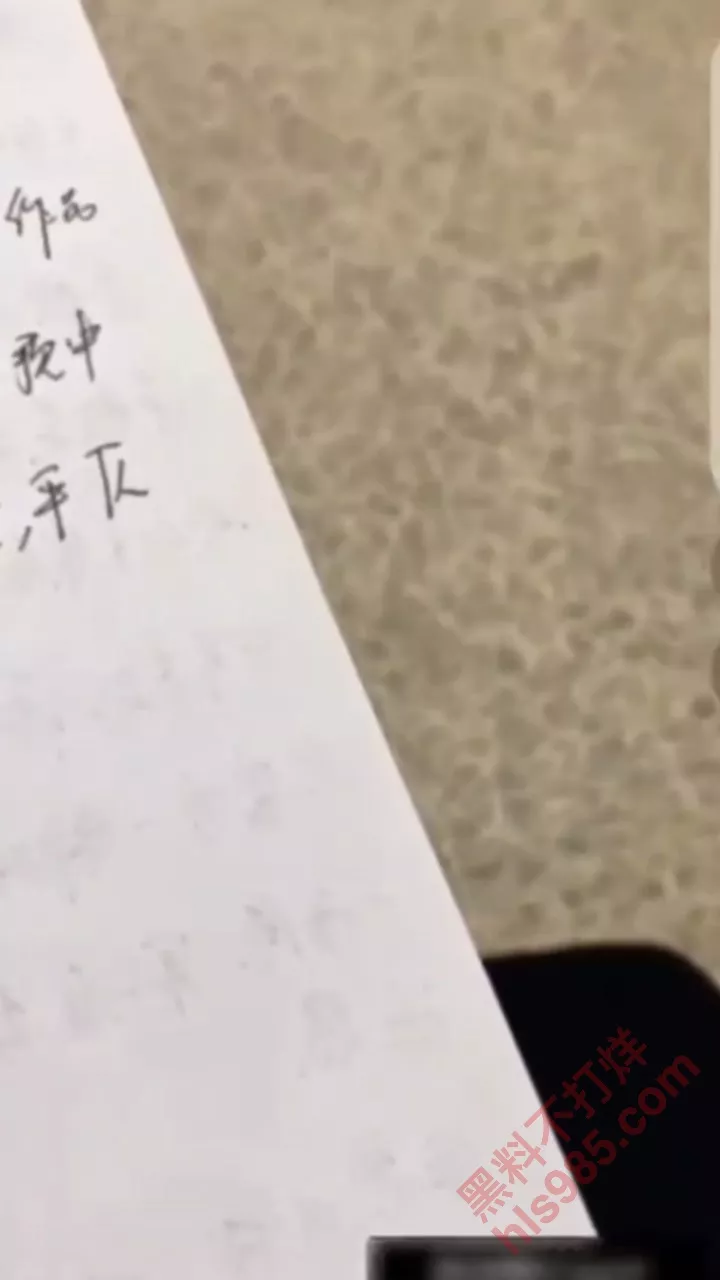 作品
歌中
,平仄
黑料不打烊
hls985.com